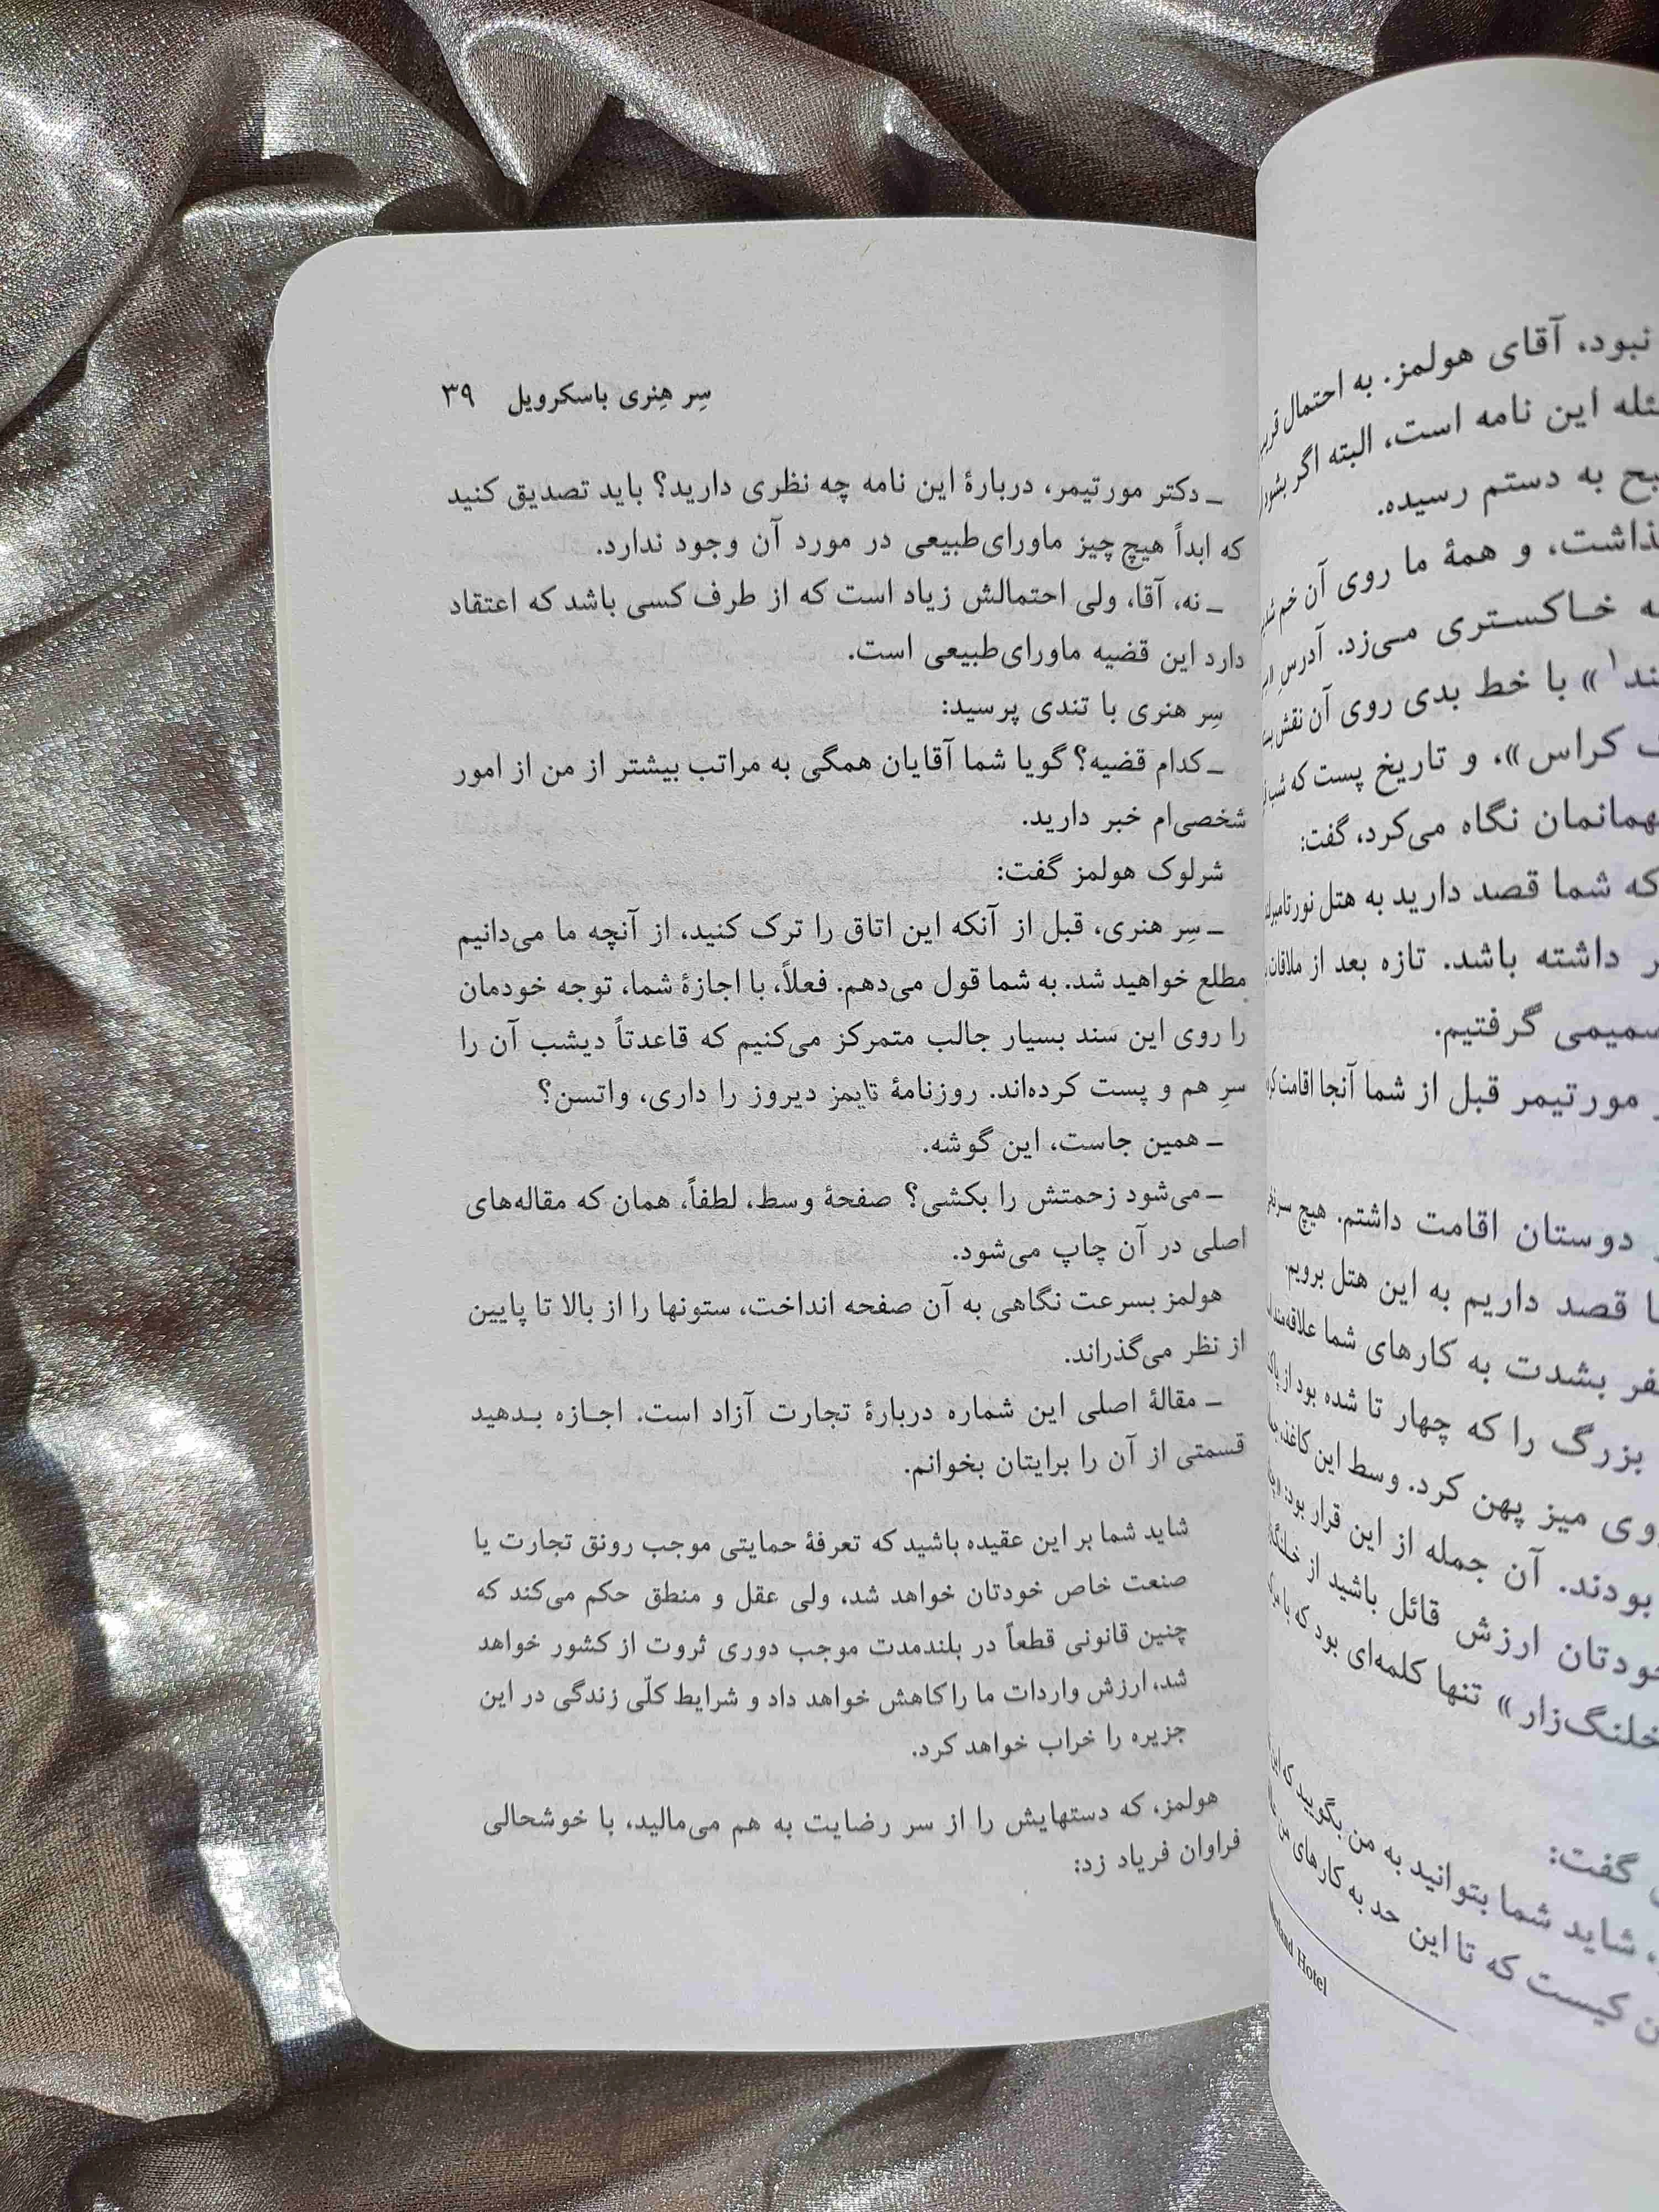 نبود، آقای هولمز. به احتمال
این نامه است، البته اگر بشود
به دستم رسیده.
و همهٔ ما روی آن خم
خاکستری می‌زد. آدرسِ
با خط بدی روی آن نقش
کراس»، و تاریخ پست که شب
نگاه می‌کرد، گفت:
که شما قصد دارید به هتل
داشته باشد. تازه بعد از
گرفتیم.
مورتیمر قبل از شما آنجا اقامت
دوستان اقامت داشتم. هیچ
قصد داریم به این هتل برویم.
بشدت به کارهای شما
بزرگ را که چهار تا شده بود از
میز پهن کرد. وسط این کاغذ،
بودند. آن جمله از این قرار بود:
ارزش قائل باشید از
تنها کلمه‌ای بود که با
گفت:
شاید شما بتوانید به من بگویید که
کیست که تا این حد به کارهای من
Hotel
سِر هِنری باسکرویل ۳۹
ــ دکتر مورتیمر، دربارهٔ این نامه چه نظری دارید؟ باید تصدیق کنید
که ابداً هیچ چیز ماورای‌طبیعی در مورد آن وجود ندارد.
ــ نه، آقا، ولی احتمالش زیاد است که از طرف کسی باشد که اعتقاد
دارد این قضیه ماورای‌طبیعی است.
سِر هنری با تندی پرسید:
ــ کدام قضیه؟ گویا شما آقایان همگی به مراتب بیشتر از من از امور
شخصی‌ام خبر دارید.
شرلوک هولمز گفت:
ــ سِر هنری، قبل از آنکه این اتاق را ترک کنید، از آنچه ما می‌دانیم
مطلع خواهید شد. به شما قول می‌دهم. فعلاً، با اجازهٔ شما، توجه خودمان
را روی این سند بسیار جالب متمرکز می‌کنیم که قاعدتاً دیشب آن را
سرِ هم و پست کرده‌اند. روزنامهٔ تایمز دیروز را داری، واتسن؟
ــ همین جاست، این گوشه.
ــ می‌شود زحمتش را بکشی؟ صفحهٔ وسط، لطفاً، همان که مقاله‌های
اصلی در آن چاپ می‌شود.
هولمز بسرعت نگاهی به آن صفحه انداخت، ستونها را از بالا تا پایین
از نظر می‌گذراند.
ــ مقالهٔ اصلی این شماره دربارهٔ تجارت آزاد است. اجازه بدهید
قسمتی از آن را برایتان بخوانم.
شاید شما بر این عقیده باشید که تعرفهٔ حمایتی موجب رونق تجارت یا
صنعت خاص خودتان خواهد شد، ولی عقل و منطق حکم می‌کند که
چنین قانونی قطعاً در بلندمدت موجب دوری ثروت از کشور خواهد
شد، ارزش واردات ما را کاهش خواهد داد و شرایط کلّی زندگی در این
جزیره را خراب خواهد کرد.
هولمز، که دستهایش را از سر رضایت به هم می‌مالید، با خوشحالی
فراوان فریاد زد: